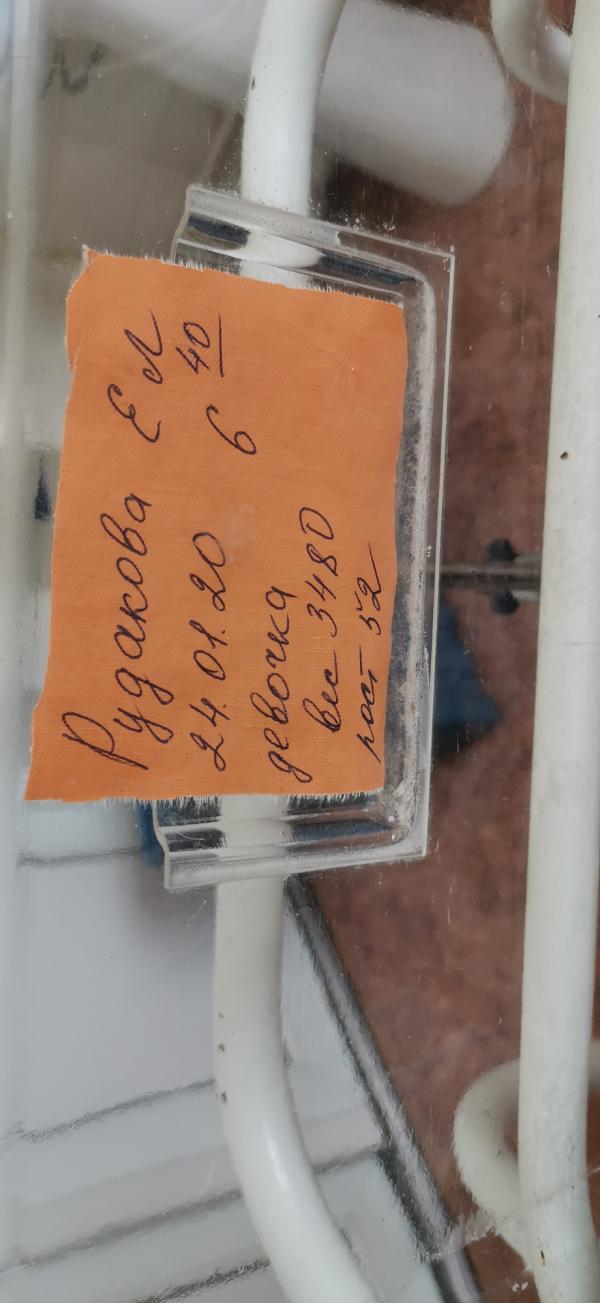 Рудакова Е Л
24.01.20 6 40
девочка
вес 3480
рост 52